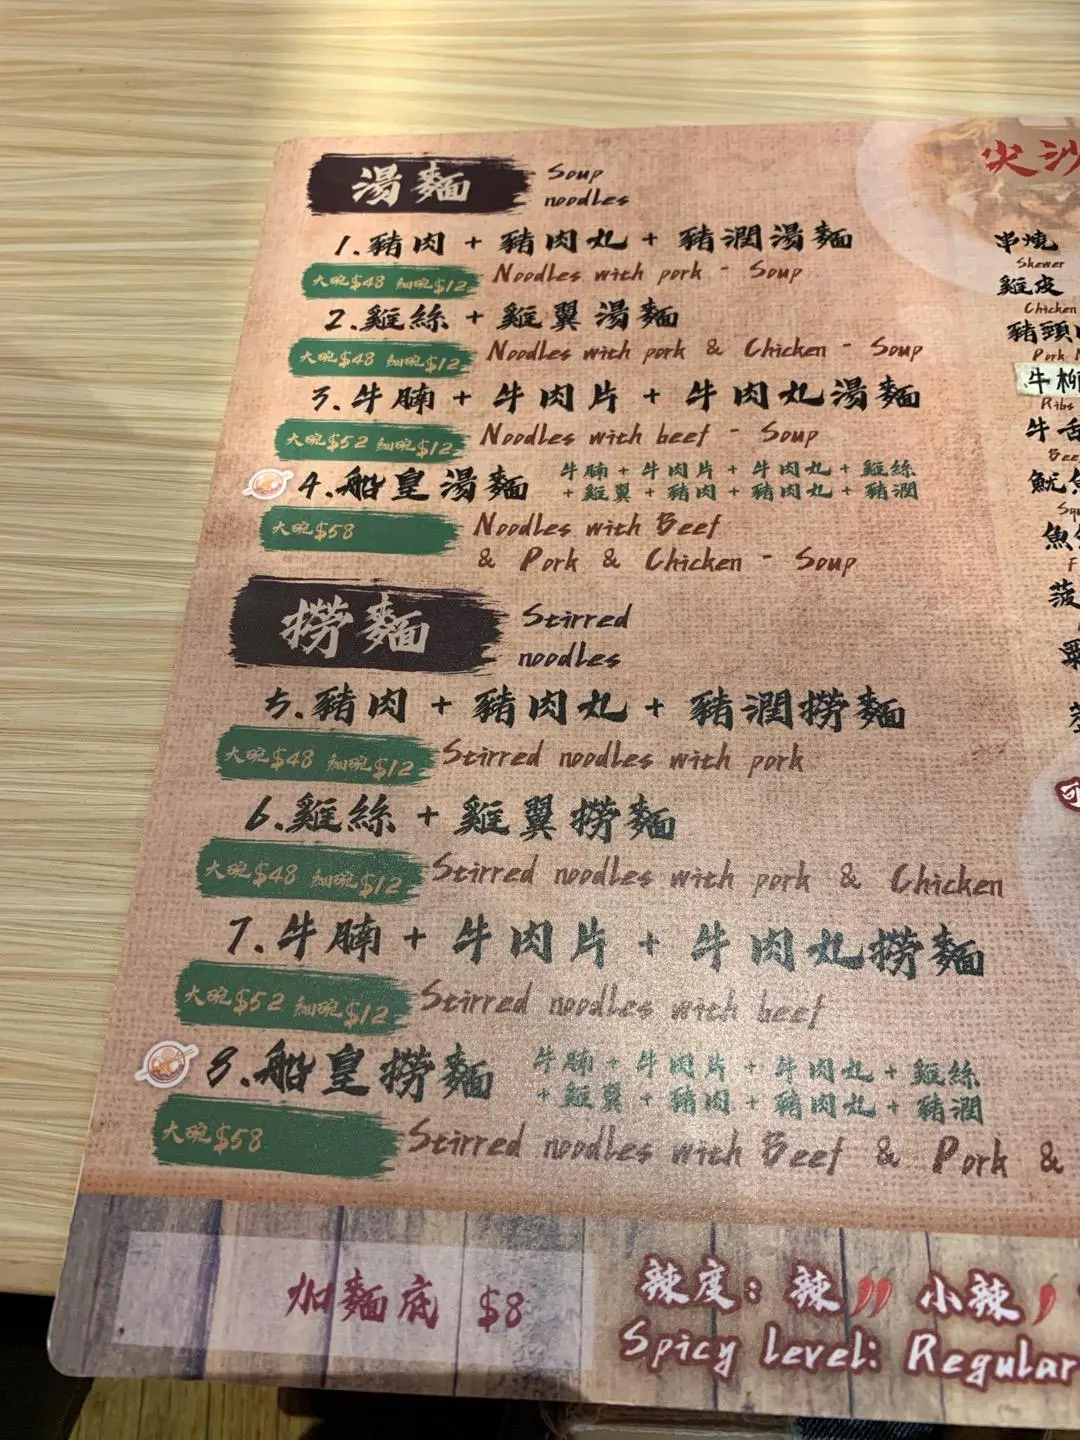 湯麵
Soup
noodles
1.豬肉 + 豬肉丸 + 豬潤湯麵
大碗$48 細碗$12
Noodles with pork - Soup
2.雞絲 + 雞翼湯麵
大碗$48 細碗$12
Noodles with pork & Chicken - Soup
3.牛腩 + 牛肉片 + 牛肉丸湯麵
大碗$52 細碗$12
Noodles with beef - Soup
4.船皇湯麵
牛腩 + 牛肉片 + 牛肉丸 + 雞絲
+ 雞翼 + 豬肉 + 豬肉丸 + 豬潤
大碗$58
Noodles with Beef
& Pork & Chicken - Soup
撈麵
Stirred
noodles
5.豬肉 + 豬肉丸 + 豬潤撈麵
大碗$48 細碗$12
Stirred noodles with pork
6.雞絲 + 雞翼撈麵
大碗$48 細碗$12
Stirred noodles with pork & Chicken
7.牛腩 + 牛肉片 + 牛肉丸撈麵
大碗$52 細碗$12
Stirred noodles with beef
8.船皇撈麵
牛腩 + 牛肉片 + 牛肉丸 + 雞絲
+ 雞翼 + 豬肉 + 豬肉丸 + 豬潤
大碗$58
Stirred noodles with Beef & Pork &
加麵底 $8
辣度：辣 小辣
Spicy Level: Regular
尖沙
串燒
Skewer
雞皮
Chicken
豬頭
Pork
牛柳
Ribs
牛舌
魷
魚
菠